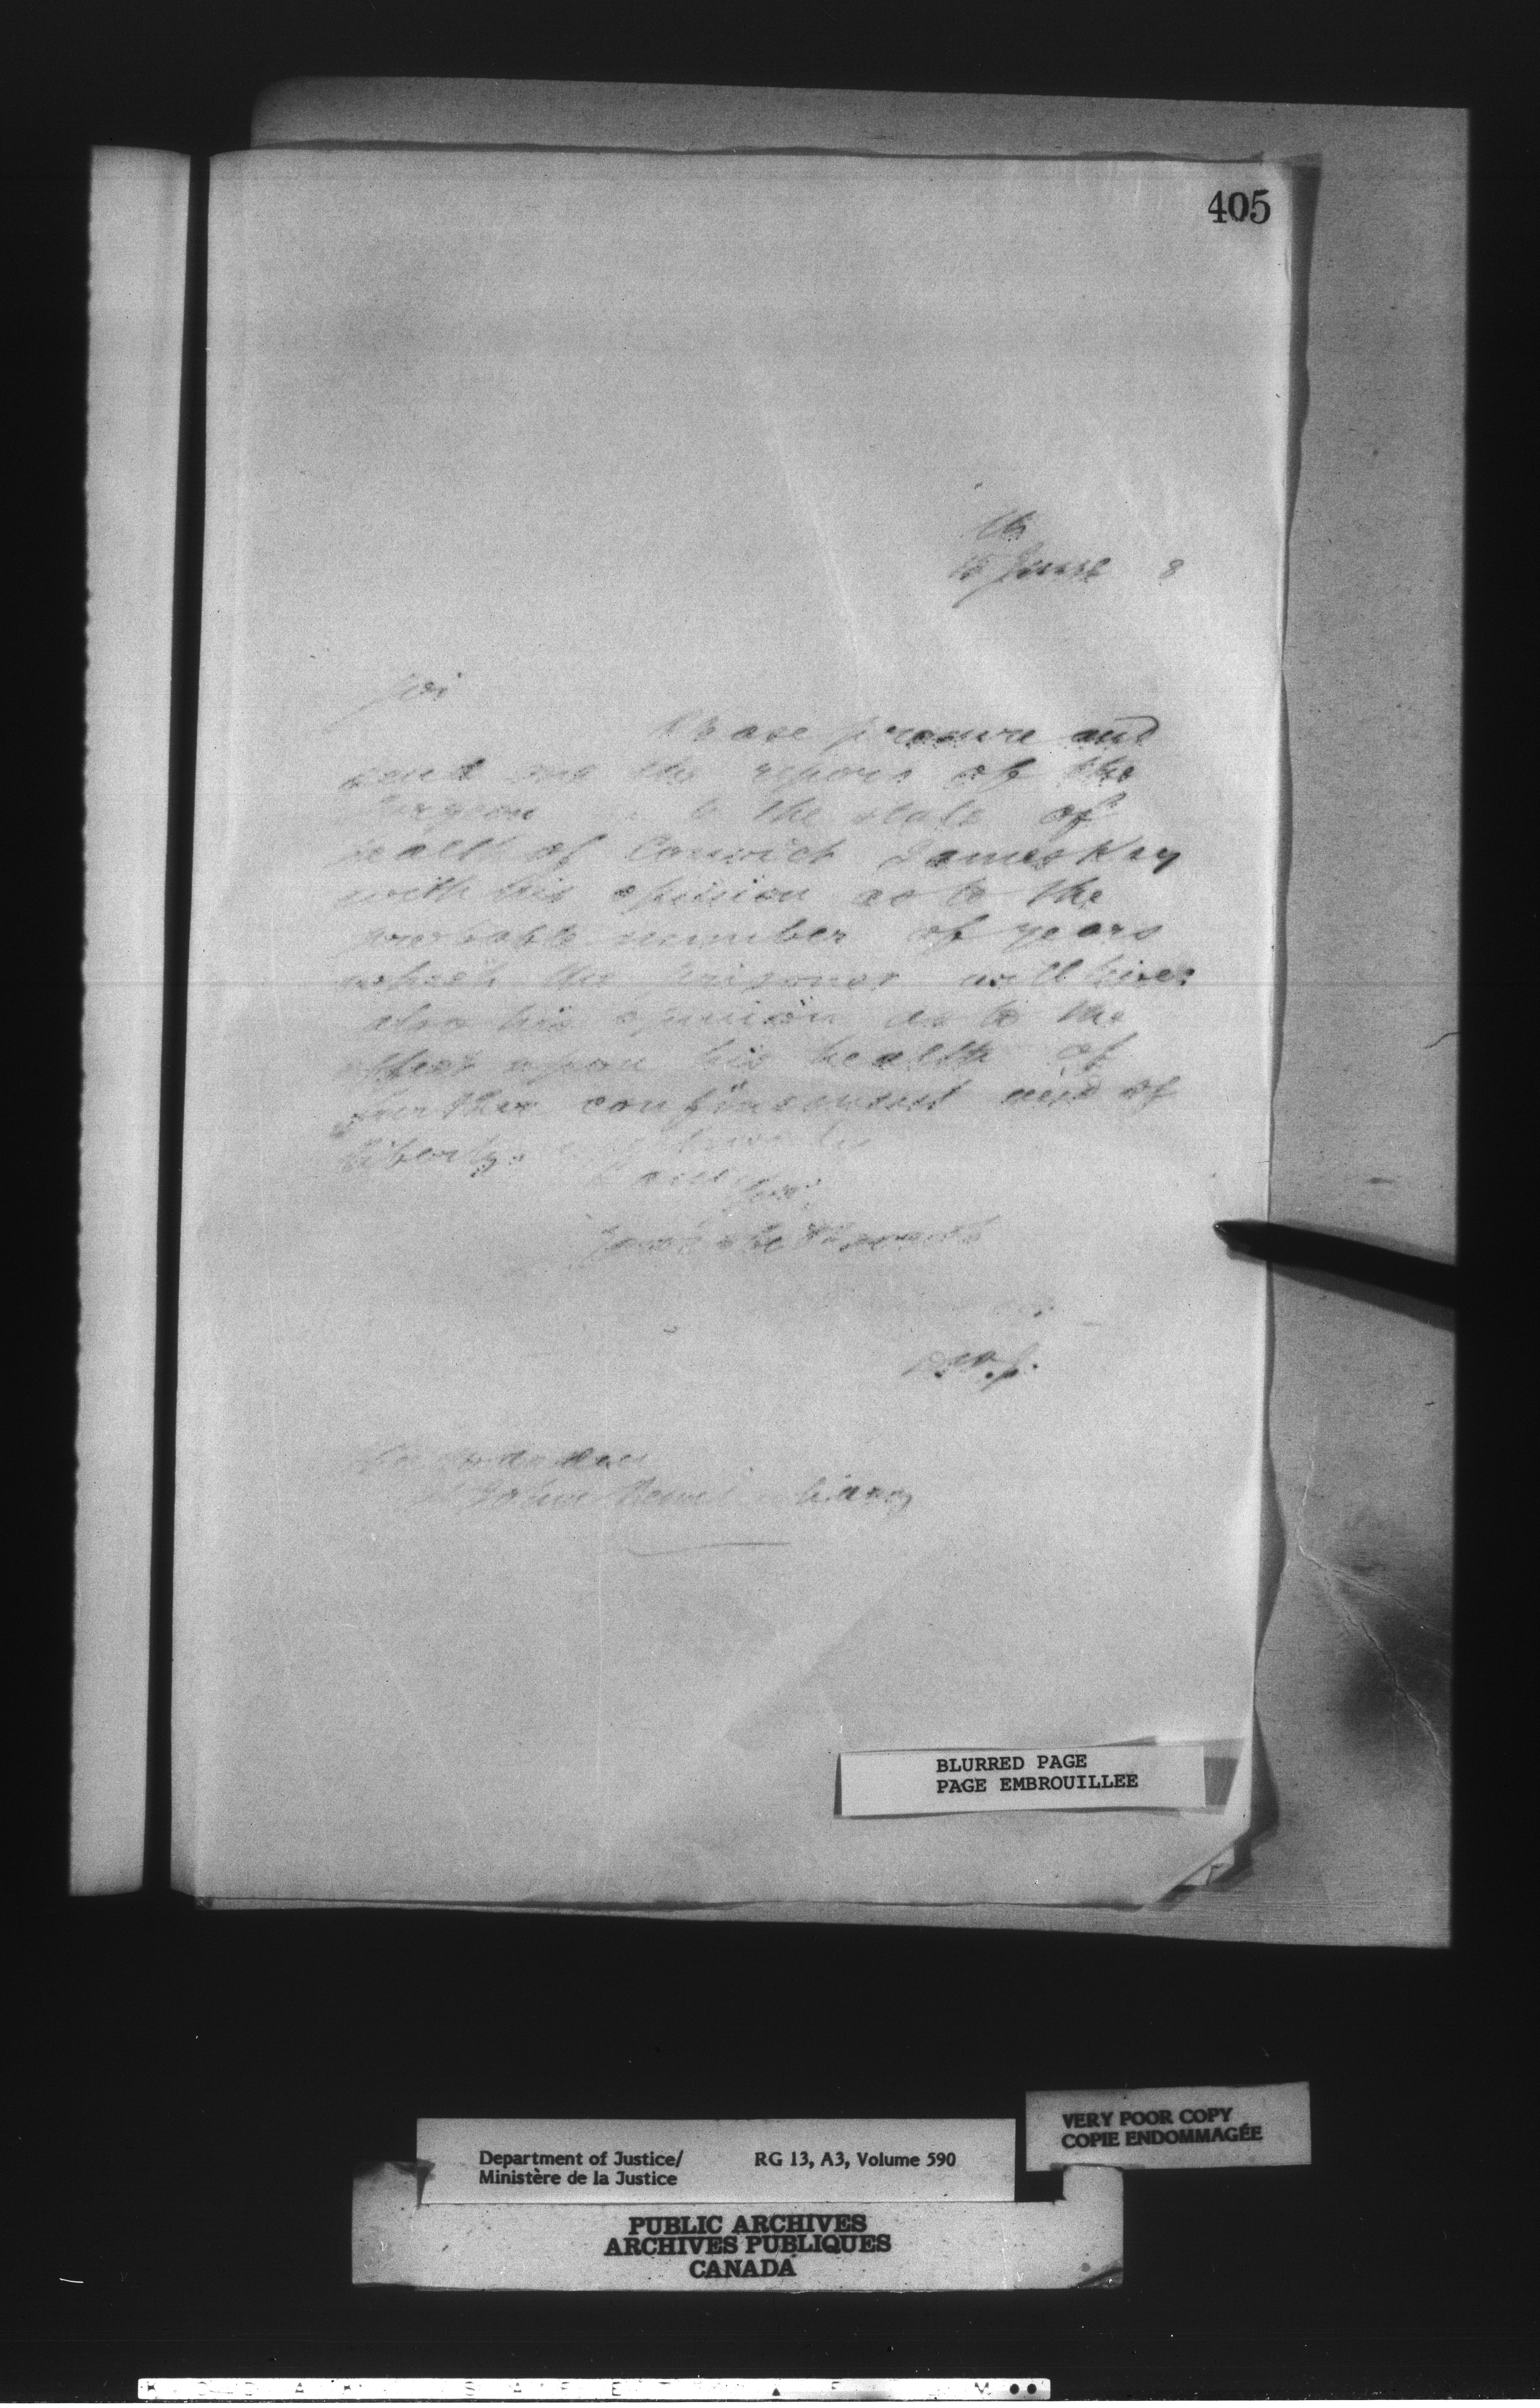 405
15 June 8
Sir
Please procure and
send me the report of the
Surgeon to the state of
health of Convict James Key
with his opinion as to the
probable number of years
which the prisoner will live:
also his opinion as to the
effect upon his health of
further confinement and of
liberty.
Sir,
Your obt Servant
Warden
St Johns Penitentiary
BLURRED PAGE
PAGE EMBROUILLEE
VERY POOR COPY
COPIE ENDOMMAGÉE
Department of Justice/ RG 13, A3, Volume 590
Ministère de la Justice
PUBLIC ARCHIVES
ARCHIVES PUBLIQUES
CANADA